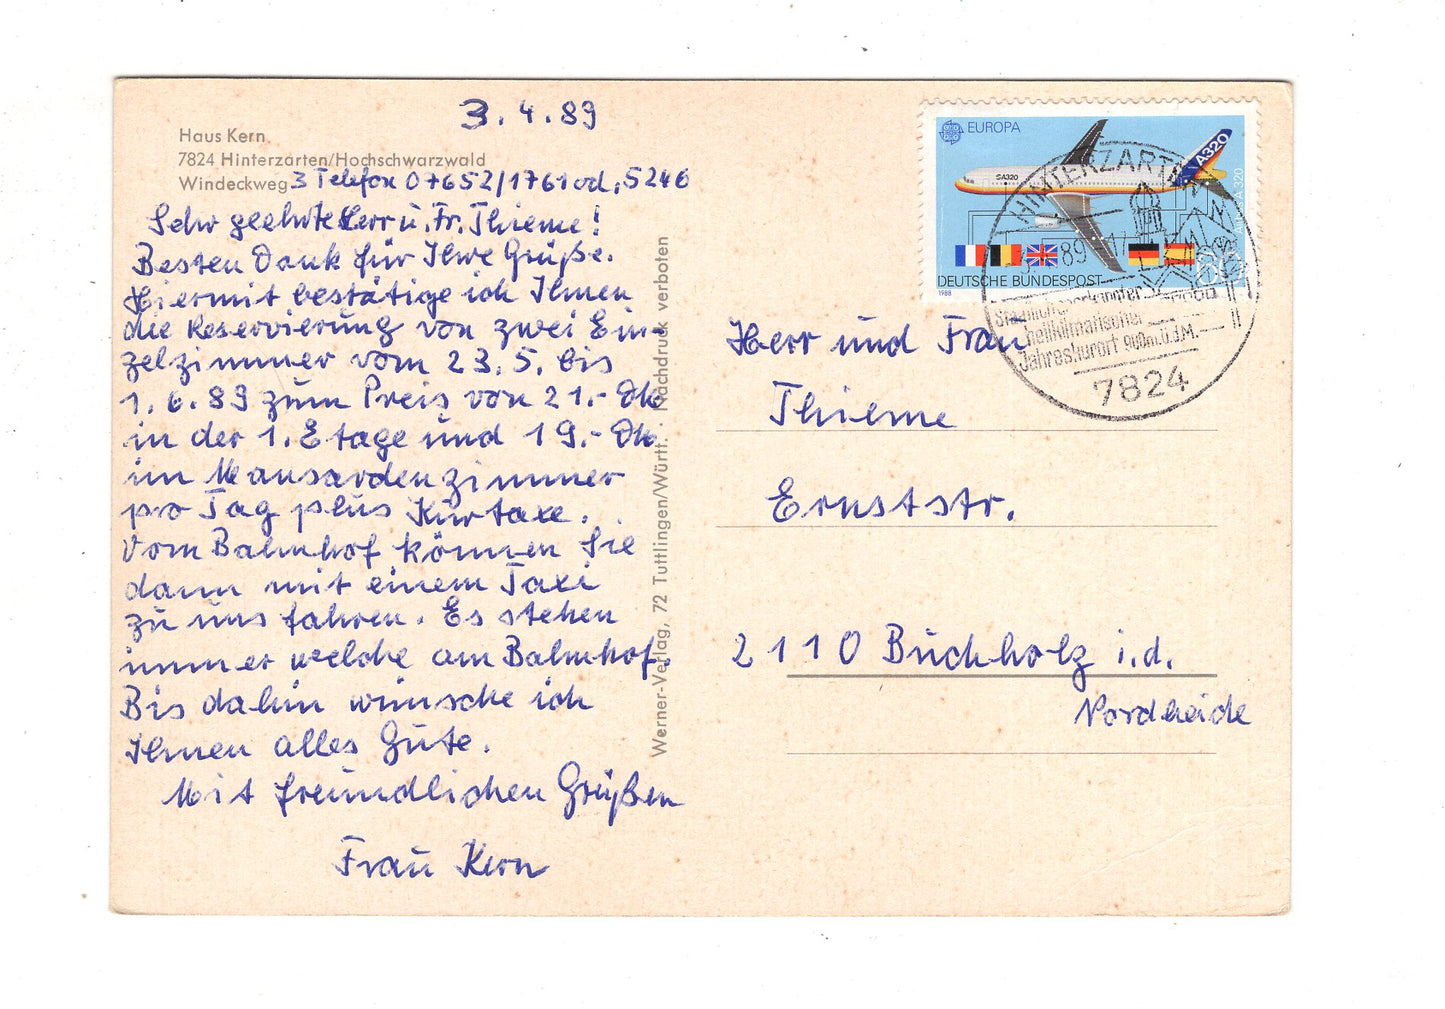 3.4.89
Haus Kern
7824 Hinterzarten/Hochschwarzwald
Windeckweg 3 Telefon 07652/1761 od. 5246
Sehr geehrte Herr u. Fr. Thieme!
Besten Dank für Ihre Grüße.
Hiermit bestätige ich Ihnen
die Reservierung von zwei Ein-
zelzimmer vom 23.5. bis
1.6.89 zum Preis von 21.- DM
in der 1. Etage und 19.- DM
im Mansardenzimmer
pro Tag plus Kurtaxe.
Vom Bahnhof können Sie
dann mit einem Taxi
zu uns fahren. Es stehen
immer welche am Bahnhof.
Bis dahin wünsche ich
Ihnen alles Gute.
Mit freundlichen Grüßen
Frau Kern
Werner-Verlag, 72 Tuttlingen/Württ. · Nachdruck verboten
EUROPA
SA320
A320
DEUTSCHE BUNDESPOST
1988
HINTERZARTEN
89
Staatlich anerkannter
heilklimatischer
Jahreskurort 900m.ü.M.
7824
Herr und Frau
Thieme
Ernststr.
2110 Buchholz i.d.
Nordheide